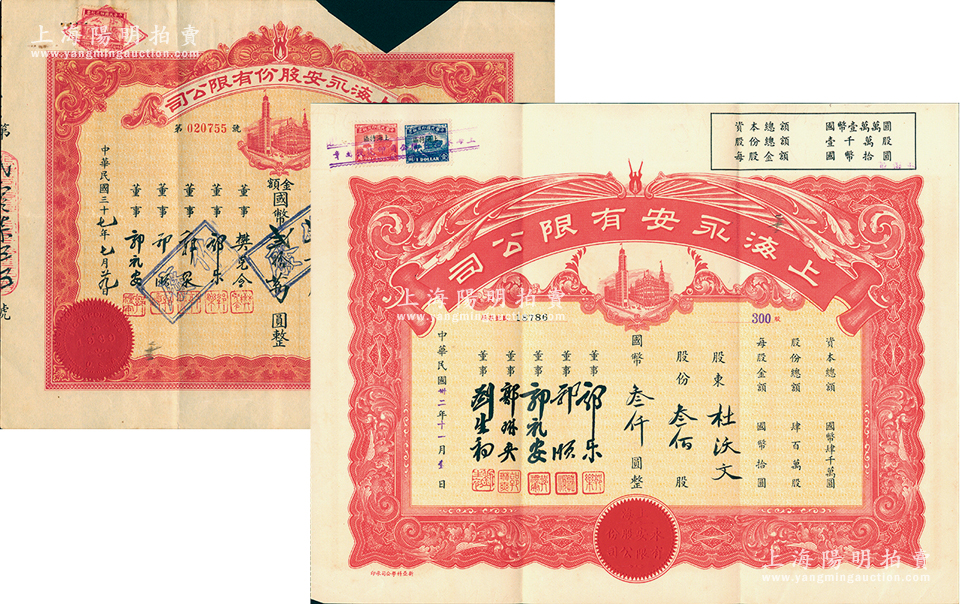 上海陽明拍賣
www.yangmingauction.com
上海永安股份有限公司
第 020755 號
金額國幣
圓整
董事 樊克令
董事 郭乐
董事
董事
董事 郭礼安
中華民國三十七年七月
資本總額 國幣壹萬萬圓
股份總數 壹千萬股
每股金額 國幣拾圓
上海永安有限公司
18786
300股
資本總額 國幣肆千萬圓
股份總額 肆百萬股
每股金額 國幣拾圓
股東 杜沃文
股份 叁佰 股
國幣 叁仟 圓整
董事 郭乐
董事 郭顺
董事 郭礼安
董事 郭琳爽
董事 劉生初
中華民國卅二年十一月 日
上海陽明拍賣
www.yangmingauction.com
上海陽明拍賣
www.yangmingauction.com